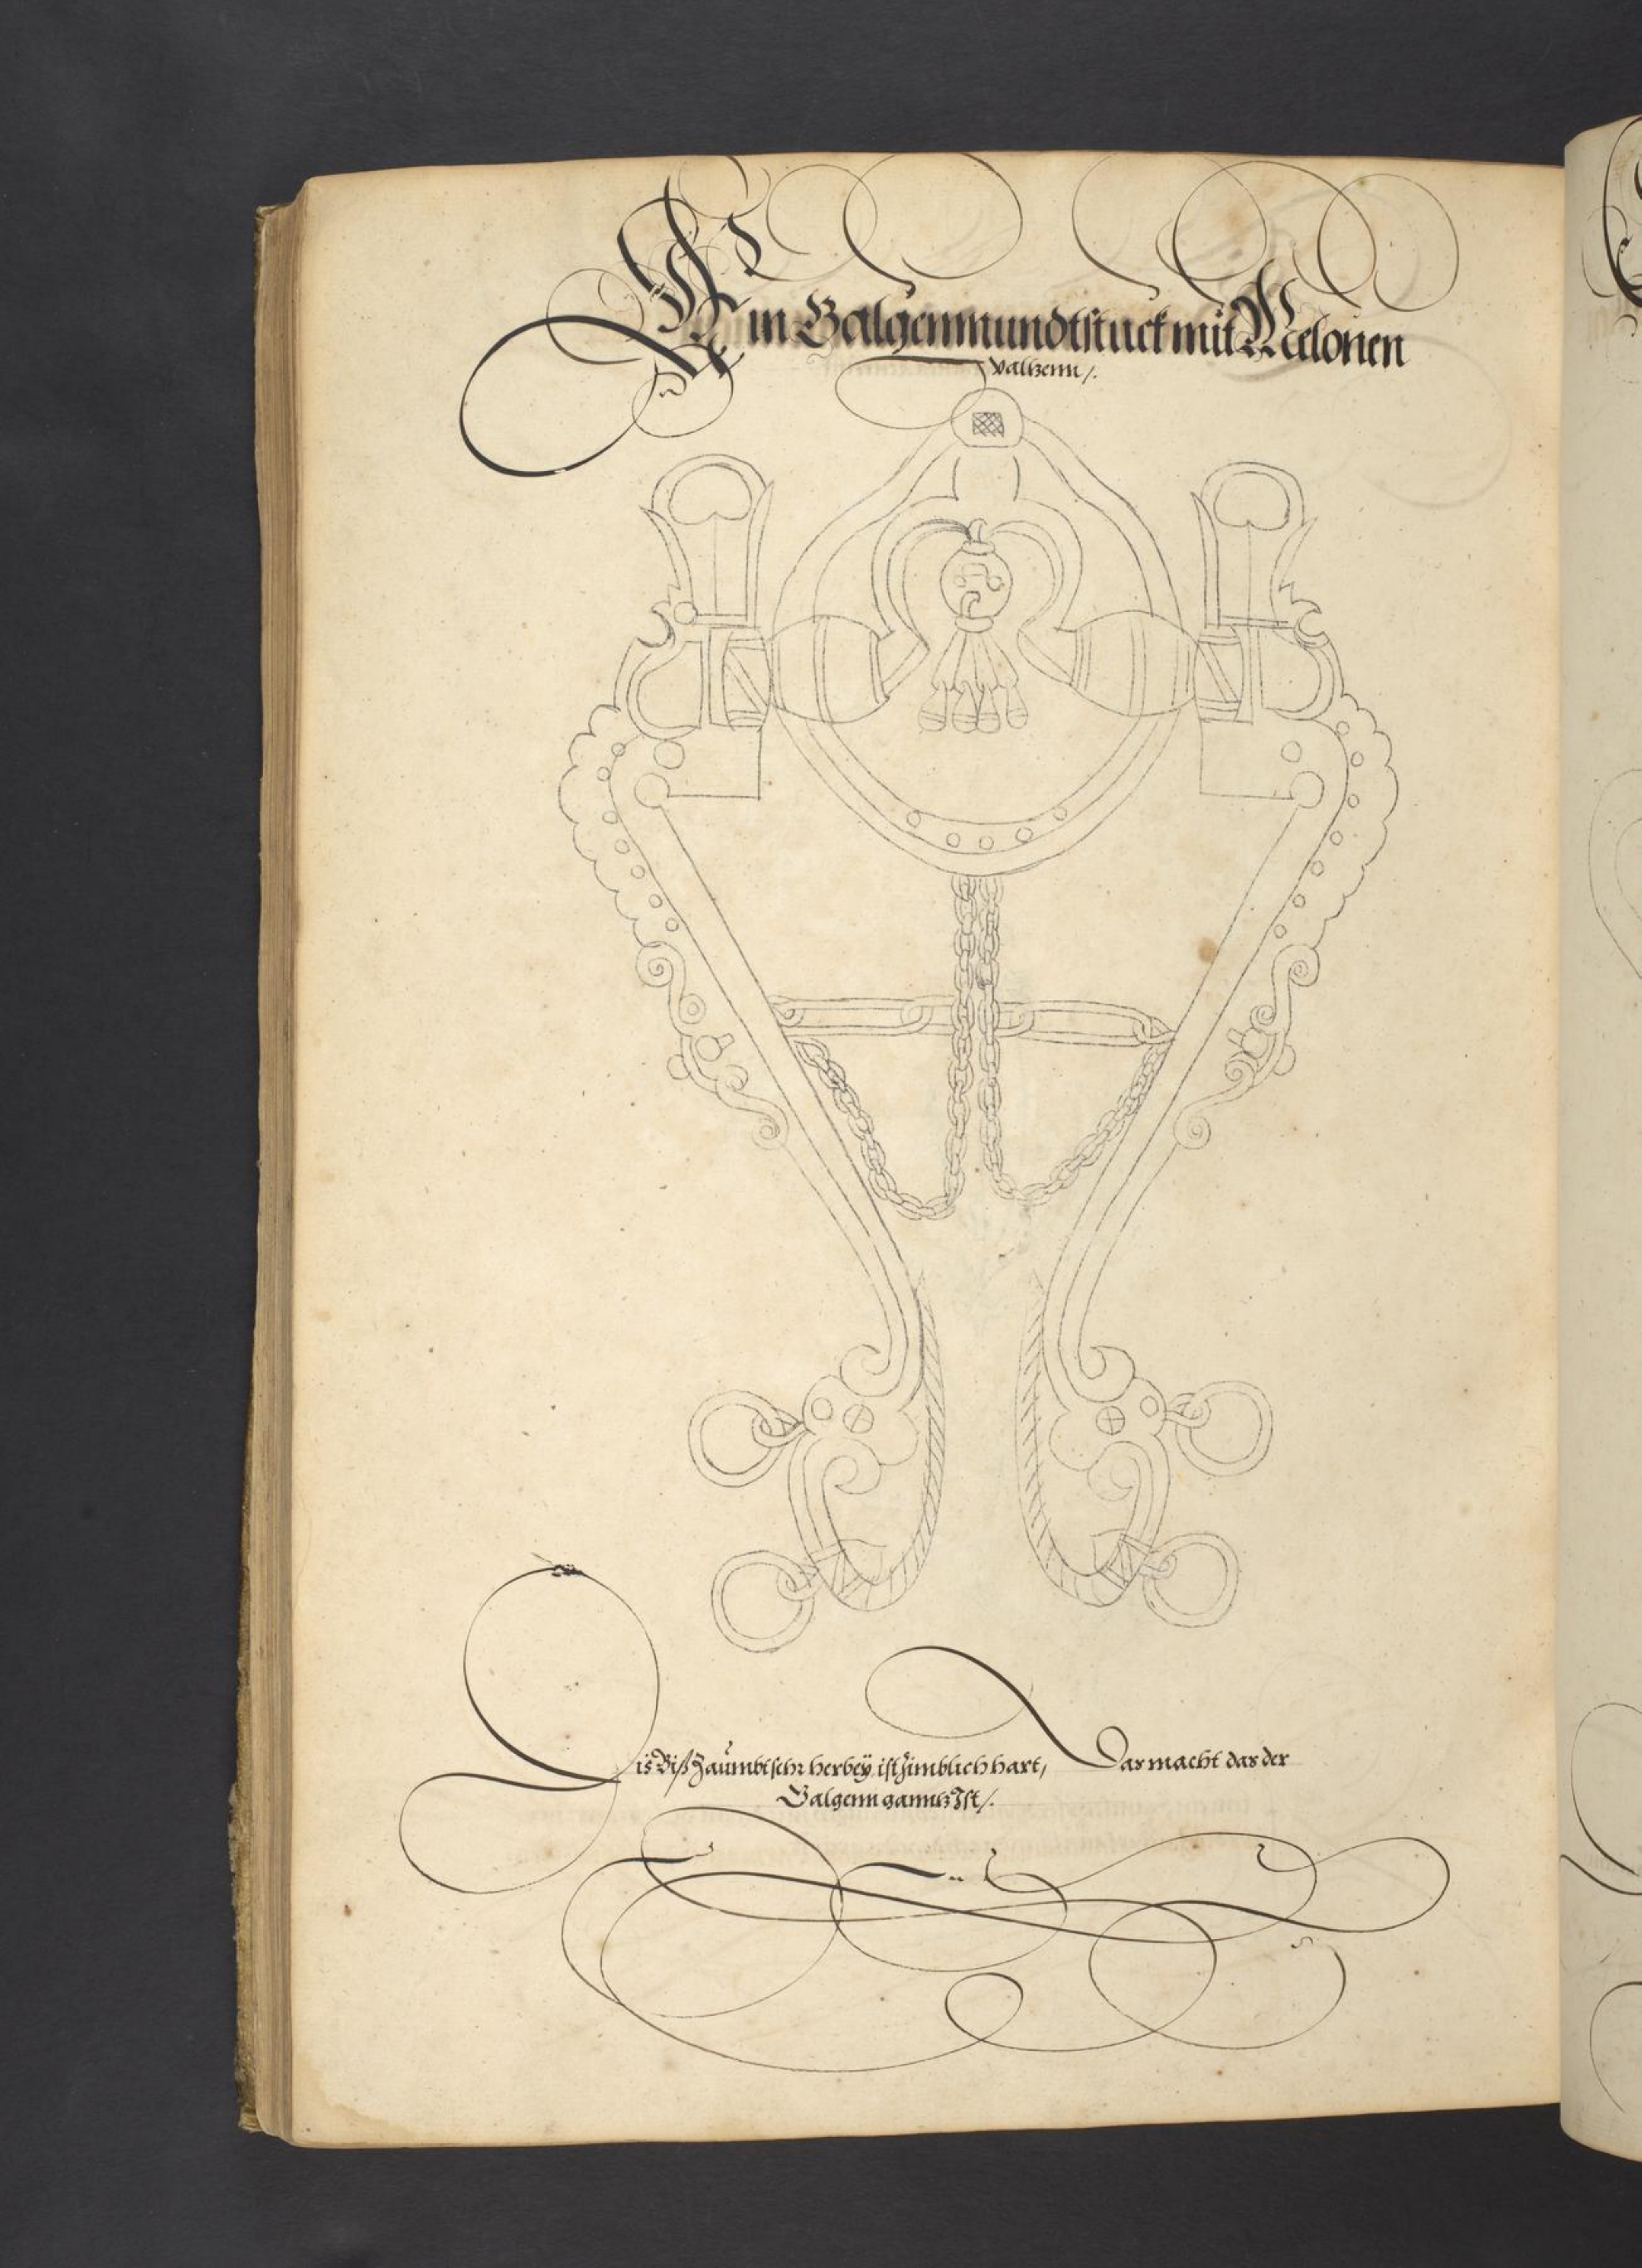 Ein Galgenmundtstuck mit Melonen
valtzenn /.
Dis Biß Zaümbt sehr herbeÿ, ist Zimblich hart, Das macht das der
Galgenn ganntz Ist /.